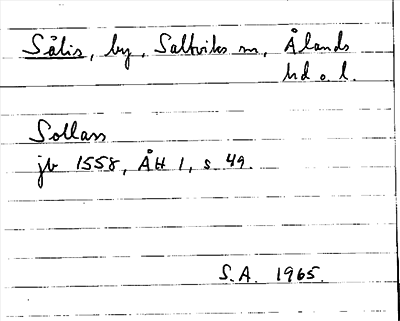 Sålis, by, Saltviks sn, Ålands
hd o. l.
Sollass
jb 1558, ÅH 1, s 49.
S.A. 1965.